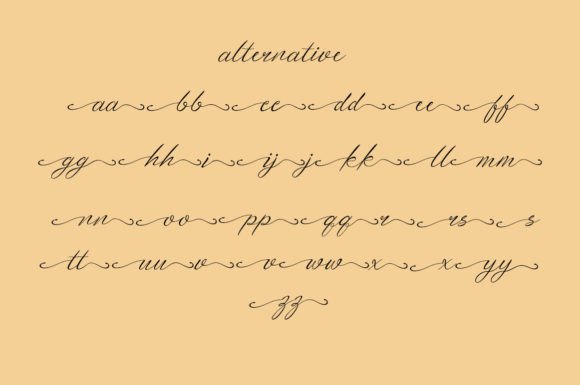 alternative
aa bb cc dd ee ff
gg hh i ij j kk ll mm
nn oo pp qq r rs s
tt uu v v ww x x yy
zz